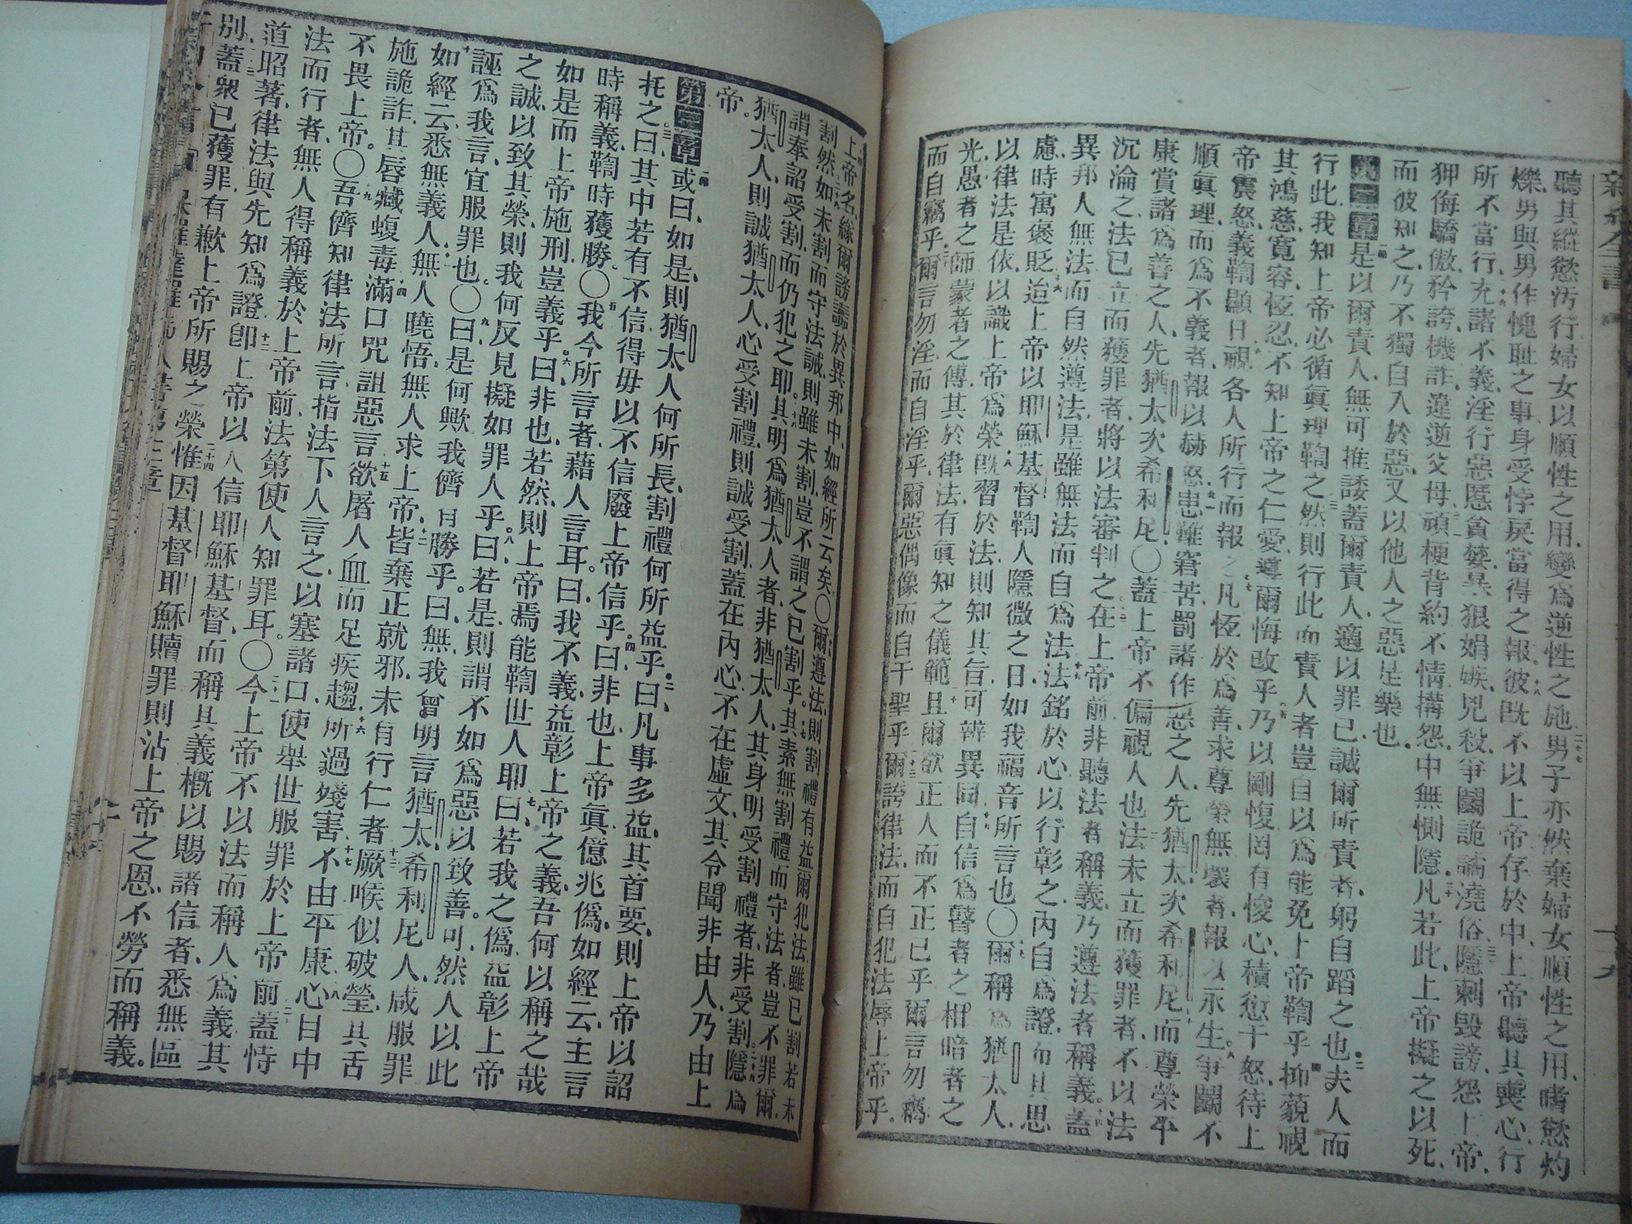 聽其縱慾汚行婦女以順性之用變爲逆性之用男子亦然棄婦女順性之用嗜慾灼
爍男與男作愧耻之事身受悖戾當得之報彼旣不以上帝存於中上帝聽其喪心行
所不當行充諸不義淫行惡慝貪婪暴狠娼嫉兇殺爭鬬詭譎澆俗隱刺毀謗怨上帝
狎侮驕傲矜誇機詐違逆父母頑梗背約不情搆怨中無惻隱凡若此上帝擬之以死
而彼知之乃不獨自入於惡又以他人之惡是樂也
第二章是以爾責人無可推諉蓋爾責人適以罪己誠爾所責者躬自蹈之也夫人而
行此我知上帝必循眞理鞫之然則行此而責人者豈自以爲能免上帝鞫乎抑藐視
其鴻慈寬容恆忍不知上帝之仁愛導爾悔改乎乃以剛愎罔有悛心積愆干怒待上
帝震怒義鞫顯日視各人所行而報之凡恆於爲善求尊榮無壞者報以永生爭鬬不
順眞理而爲不義者報以赫怒患難窘苦罰諸作惡之人先猶太次希利尼而尊榮平
康賞諸爲善之人先猶太次希利尼〇蓋上帝不偏視人也法未立而獲罪者不以法
沉淪之法已立而獲罪者將以法審判之在上帝前非聽法者稱義乃遵法者稱義蓋
異邦人無法而自然遵法是雖無法而自爲法法銘於心以行彰之內自爲證而且思
慮時寓褒貶迨上帝以耶穌基督鞫人隱微之日如我福音所言也〇爾稱爲猶太人
以律法是依以識上帝爲榮旣習於法則知其旨可辨異同自信爲瞽者之相暗者之
光愚者之師蒙者之傅其於律法有眞知之儀範且爾欲正人而不正己乎爾言勿竊
而自竊乎爾言勿淫而自淫乎爾惡偶像而自干聖乎爾誇律法而自犯法辱上帝乎
上帝名緣爾謗讟於異邦中如經所云矣〇爾遵法則割禮有益爾犯法雖已割若未
割然如未割而守法誡則雖未割豈不謂之已割乎其素無割禮而守法者豈不罪爾
謂奉詔受割而仍犯之耶其明爲猶太人者非猶太人其身明受割禮者非受割隱爲
猶太人則誠猶太人心受割禮則誠受割蓋在內心不在虛文其令聞非由人乃由上
帝
第三章或曰如是則猶太人何所長割禮何所益乎曰凡事多益其首要則上帝以詔
托之曰其中若有不信得毋以不信廢上帝信乎曰非也上帝眞億兆僞如經云主言
時稱義鞫時獲勝〇我今所言者藉人言耳曰我不義益彰上帝之義吾何以稱之哉
如是而上帝施刑豈義乎曰非也若然則上帝焉能鞫世人耶曰若我之僞益彰上帝
之誠以致其榮則我何反見擬如罪人乎曰若是則謂不如爲惡以致善可然人以此
誣爲我言宜服罪也〇曰是何歟我儕有勝乎曰無我曾明言猶太希利尼人咸服罪
如經云悉無義人無人曉悟無人求上帝皆棄正就邪未有行仁者厥喉似破塋其舌
施詭詐其唇藏蝮毒滿口咒詛惡言欲屠人血而足疾趨所過殘害不由平康心目中
不畏上帝〇吾儕知律法所言指法下人言之以塞諸口使舉世服罪於上帝前蓋恃
法而行者無人得稱義於上帝前法第使人知罪耳〇今上帝不以法而稱人爲義其
道昭著律法與先知爲證卽上帝以人信耶穌基督而稱其義槪以賜諸信者悉無區
別蓋衆已獲罪有歉上帝所賜之榮惟因基督耶穌贖罪則沾上帝之恩不勞而稱義